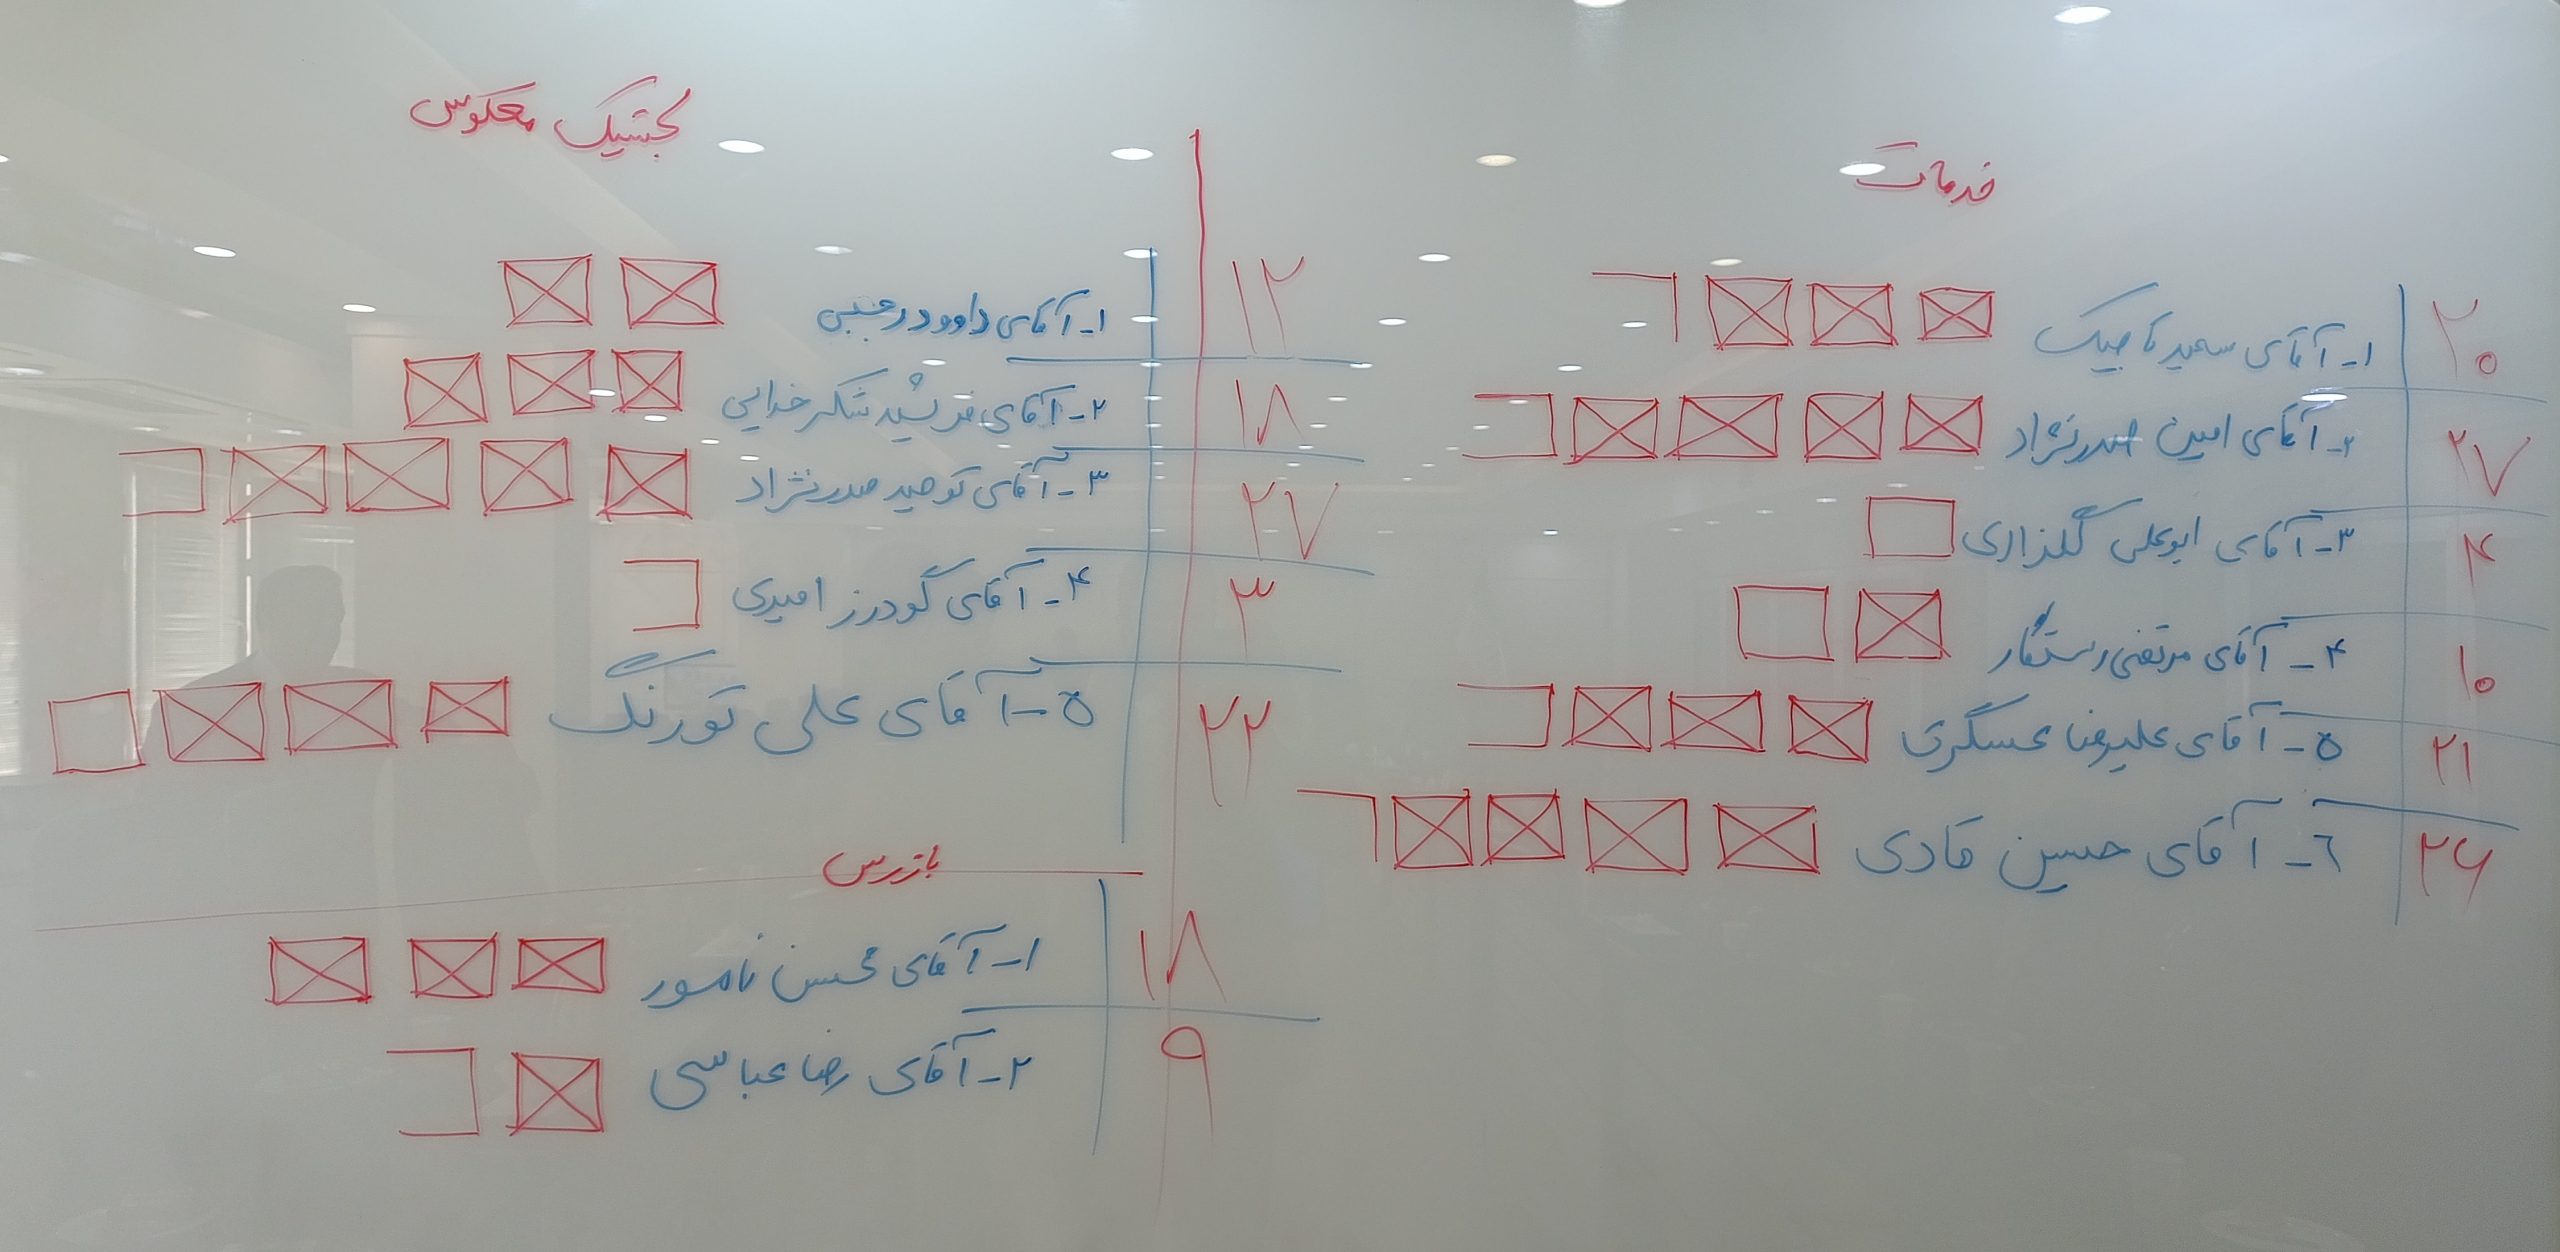 خدمات
۱- آقای سعید تاجیک ۲۰
۲- آقای امین صدرنژاد ۲۷
۳- آقای ابوعلی گلزاری ۴
۴- آقای مرتضی رستگار ۱۰
۵- آقای علیرضا عسگری ۲۱
۶- آقای حسین قادی ۲۶
لجستیک معکوس
۱- آقای داوود رجبی ۱۲
۲- آقای فرشید شکرخدایی ۱۸
۳- آقای توحید صدرنژاد ۲۷
۴- آقای گودرز امیری ۳
۵- آقای علی تورنگ ۲۲
بازرس
۱- آقای محسن نامور ۱۸
۲- آقای رضا عباسی ۹